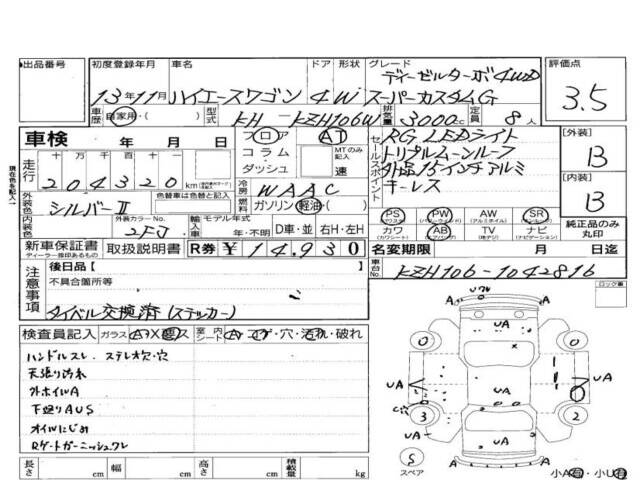 出品番号 初度登録年月 車名 ドア 形状 グレード 評価点
ディーゼルターボ4WD
13年11月 ハイエースワゴン 4 W スーパーカスタムG 3.5
車歴 自家用・( ) 型式 KH-KZH106W 排気量 3000cc 定員 8人
車検 年 月 日 フロア AT セールスポイント RG LEDライト [外装] B
走行 十 万 千 百 十 一 コラム MTのみ記入 トリプルムーンルーフ
204320 km ダッシュ 速 外品16インチアルミ
冷房 WAAC キーレス [内装] B
外装色 シルバーII 色替車は色替と記入 燃料 ガソリン 軽油・( )
PS PW AW SR 純正品のみ丸印
内装色 外装カラーNo. 2FJ 輸入車 モデル年式 年・不明 D車・並 右H・左H カワ AB TV ナビ
新車保証書 取扱説明書 R券 ¥14,930 名変期限 月 日迄
ディーラー捺印あるもの
注意事項 後日品【 】 車台No. KZH106-1042816
不具合箇所等 ロック車
タイベル交換済(ステッカー)
検査員記入 ガラス 室内シート
ハンドルスレ ステレオ穴・穴
天張り汚れ
外ホイルA
下廻りAUS
オイルにじみ
Rゲートガーニッシュワレ
長さ cm 幅 cm 高さ cm 積載量 kg
UA
A A
0 0
UA UA
3 2
UA
S スペア
A A
小A有・小U有